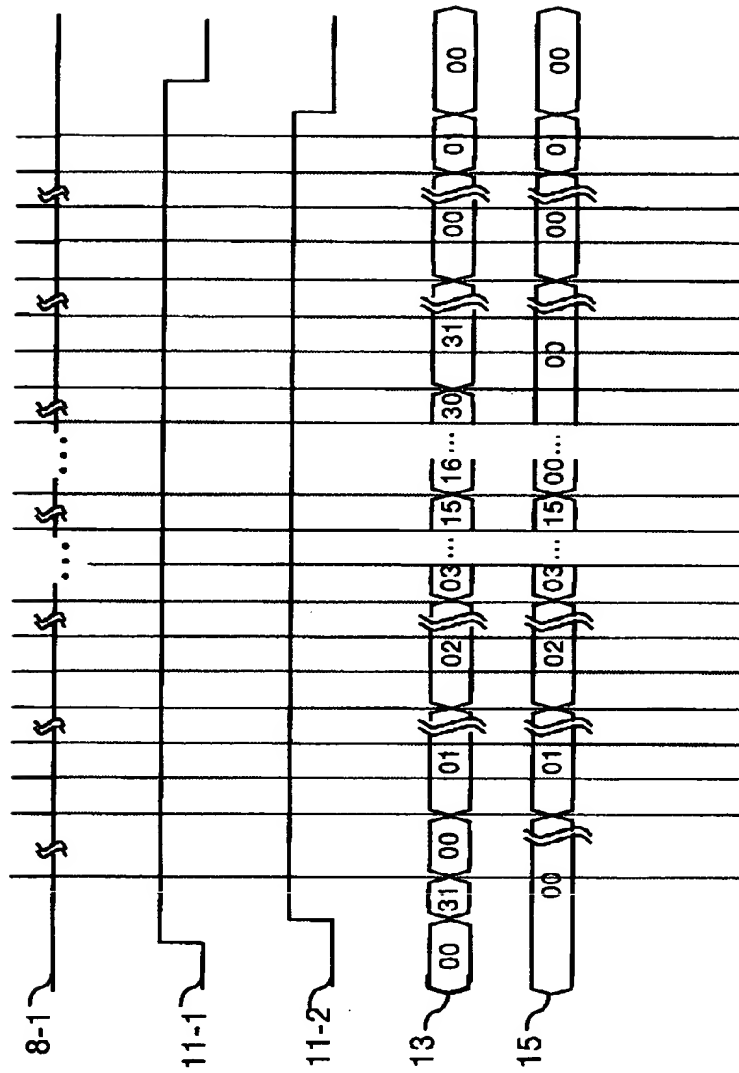 8-1
... ...
11-1
11-2
13
00 31 00 01 02 03 ... 15 16 ... 30 31 00 01 00
15
00 01 02 03 ... 15 00 ... 00 00 01 00